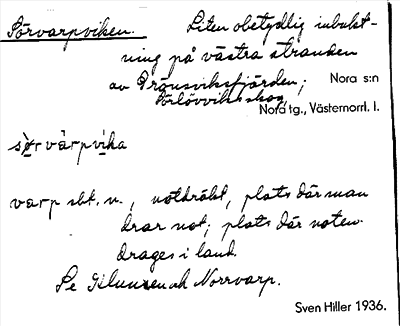 Sörvarpviken. Liten obetydlig inbukt-
ning på västra stranden
av Dränsviksfjärden; Nora s:n
Nord tg., Västernorrl. l.
sö̀rvàrpvika
varp sbt. n., notdräkt, plats där man
drar not; plats där noten
drages i land.
Se och Norrvarp.
Sven Hiller 1936.